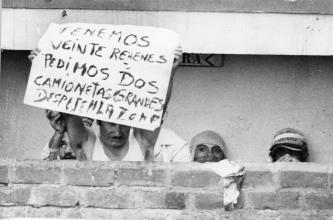 TENEMOS
VEINTE REHENES
PEDIMOS DOS
CAMIONETAS GRANDES
DESPEJEN LA ZONA